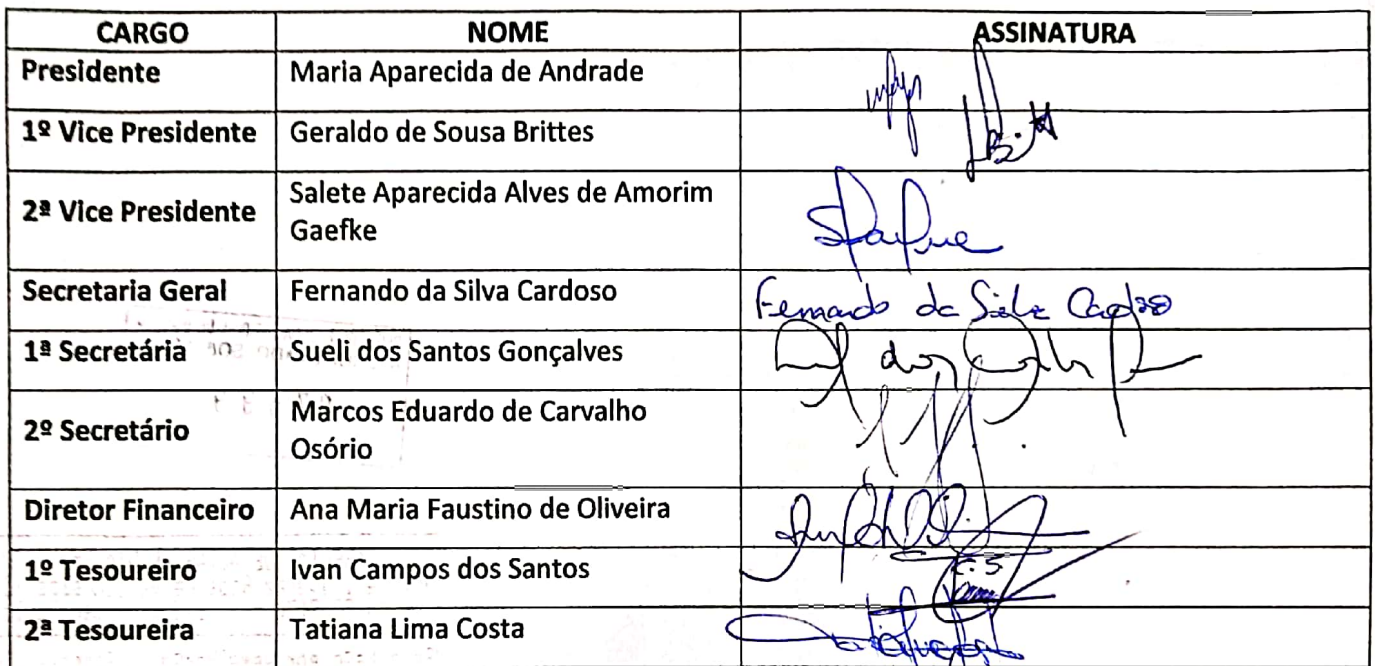 CARGO NOME ASSINATURA
Presidente Maria Aparecida de Andrade
1º Vice Presidente Geraldo de Sousa Brittes
2ª Vice Presidente Salete Aparecida Alves de Amorim
Gaefke
Secretaria Geral Fernando da Silva Cardoso Fernando da Silva Cardoso
1ª Secretária Sueli dos Santos Gonçalves
2º Secretário Marcos Eduardo de Carvalho
Osório
Diretor Financeiro Ana Maria Faustino de Oliveira
1º Tesoureiro Ivan Campos dos Santos
2ª Tesoureira Tatiana Lima Costa